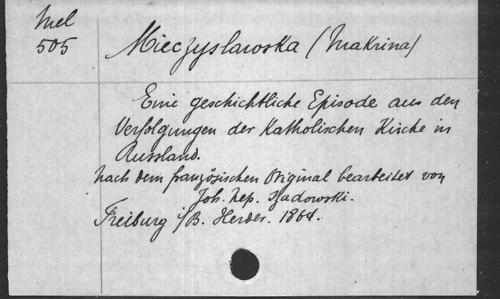 Mel
505
Mieczyslawska (Makrina)
Eine geschichtliche Episode aus den
Verfolgungen der Katholischen Kirche in
Russland.
Nach dem französischen Original bearbeitet von
Joh. Nep. Szadowski.
Freiburg i/B. Herder. 1864.